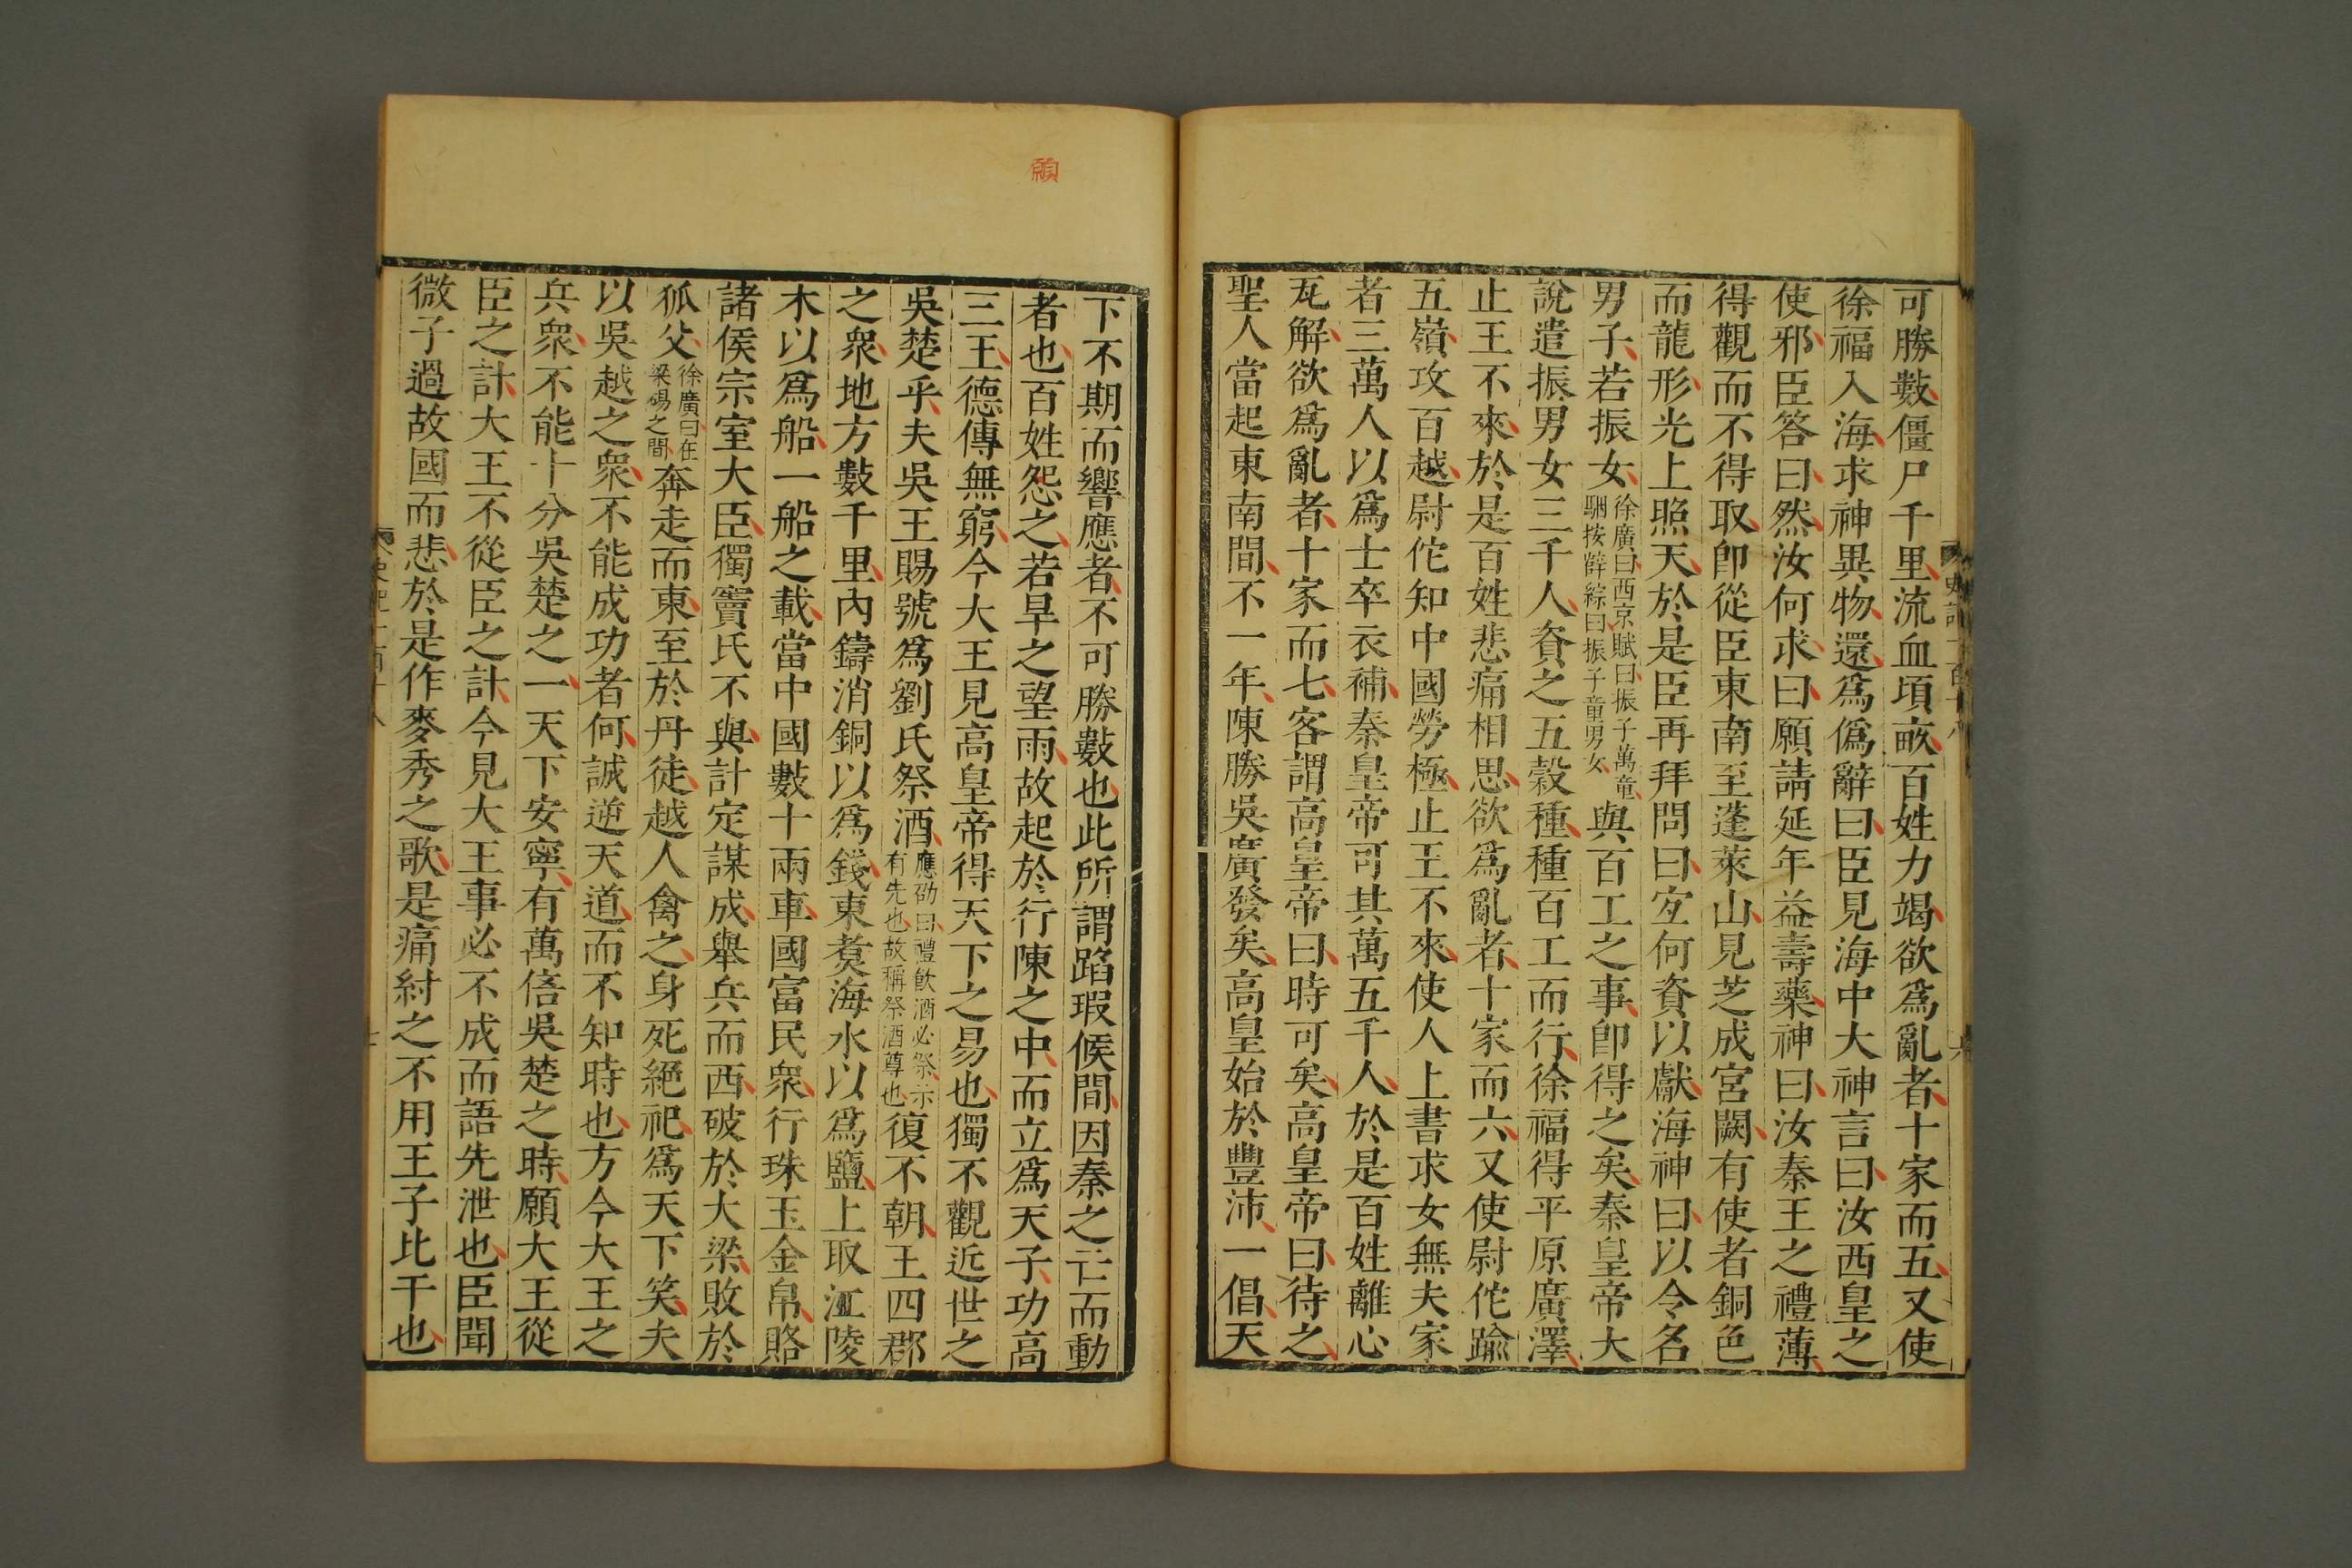 可勝數僵尸千里流血頃畝百姓力竭欲爲亂者十家而五又使
徐福入海求神異物還爲僞辭曰臣見海中大神言曰汝西皇之
使邪臣答曰然汝何求曰願請延年益壽藥神曰汝秦王之禮薄
得觀而不得取卽從臣東南至蓬萊山見芝成宮闕有使者銅色
而龍形光上照天於是臣再拜問曰宐何資以獻海神曰以令名
男子若振女
徐廣曰西京賦曰振子萬童
駰按薛綜曰振子童男女
與百工之事卽得之矣秦皇帝大
說遣振男女三千人資之五穀種種百工而行徐福得平原廣澤
止王不來於是百姓悲痛相思欲爲亂者十家而六又使尉佗踰
五嶺攻百越尉佗知中國勞極止王不來使人上書求女無夫家
者三萬人以爲士卒衣補秦皇帝可其萬五千人於是百姓離心
瓦解欲爲亂者十家而七客謂高皇帝曰時可矣高皇帝曰待之
聖人當起東南間不一年陳勝吳廣發矣高皇始於豐沛一倡天
下不期而響應者不可勝數也此所謂蹈瑕候間因秦之亡而動
者也百姓怨之若旱之望雨故起於行陳之中而立爲天子功高
三王德傳無窮今大王見高皇帝得天下之易也獨不觀近世之
吳楚乎夫吳王賜號爲劉氏祭酒
應劭曰禮飲酒必祭示
有先也故稱祭酒尊也
復不朝王四郡
之衆地方數千里內鑄消銅以爲錢東煑海水以爲鹽上取江陵
木以爲船一船之載當中國數十兩車國富民衆行珠玉金帛賂
諸侯宗室大臣獨竇氏不與計定謀成舉兵而西破於大梁敗於
狐父
徐廣曰在
梁碭之間
奔走而東至於丹徒越人禽之身死絕祀爲天下笑夫
以吳越之衆不能成功者何誠逆天道而不知時也方今大王之
兵衆不能十分吳楚之一天下安寧有萬倍吳楚之時願大王從
臣之計大王不從臣之計今見大王事必不成而語先泄也臣聞
微子過故國而悲於是作麥秀之歌是痛紂之不用王子比干也